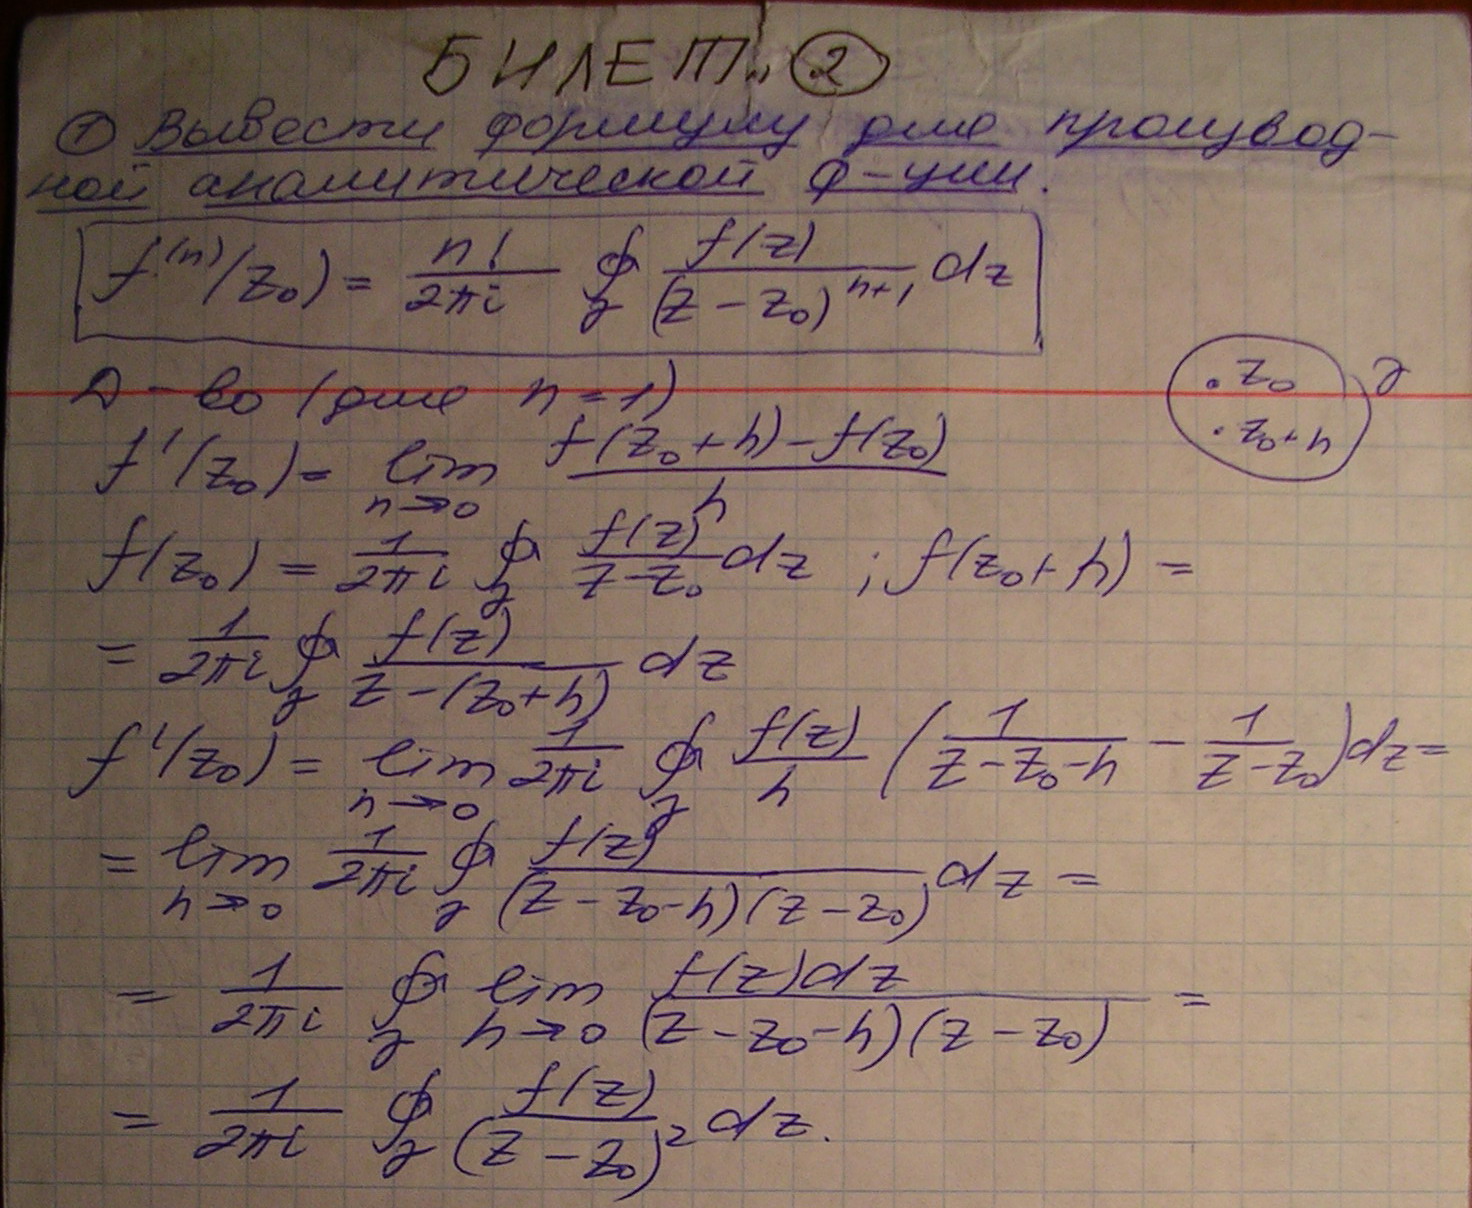 БИЛЕТ 2
① Вывести формулу для производ-
ной аналитической ф-ции.
f⁽ⁿ⁾(z₀) = n!/2πi ∮_γ f(z)/(z-z₀)ⁿ⁺¹ dz
Д-во (для n=1)
• z₀
γ
• z₀+h
f'(z₀) = lim_{h→0} (f(z₀+h)-f(z₀))/h
f(z₀) = 1/2πi ∮_γ f(z)/(z-z₀) dz ; f(z₀+h) =
= 1/2πi ∮_γ f(z)/(z-(z₀+h)) dz
f'(z₀) = lim_{h→0} 1/2πi ∮_γ f(z)/h (1/(z-z₀-h) - 1/(z-z₀)) dz =
= lim_{h→0} 1/2πi ∮_γ f(z)/((z-z₀-h)(z-z₀)) dz =
= 1/2πi ∮_γ lim_{h→0} f(z)dz/((z-z₀-h)(z-z₀)) =
= 1/2πi ∮_γ f(z)/(z-z₀)² dz.